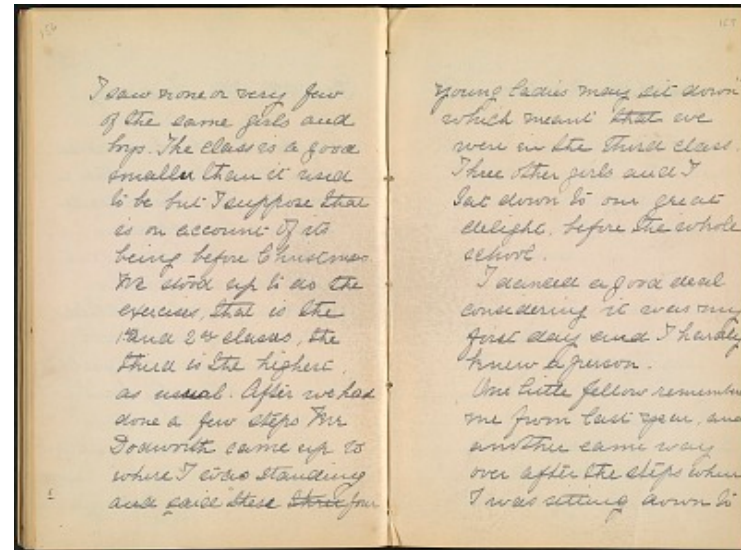 156
I saw none or very few
of the same girls and
boys. The class is a good
smaller than it used
to be but I suppose that
is on account of its
being before Christmas.
We stood up to do the
exercises, that is the
1st and 2nd classes, the
third is the highest,
as usual. After we had
done a few steps Mr
Dodworth came up to
where I was standing
and said these three four
157
young ladies may sit down
which meant that we
were in the third class.
Three other girls and I
sat down to our great
delight, before the whole
school.
I danced a good deal
considering it was my
first day and I hardly
knew a person.
One little fellow remember
me from last year, and
another came way
over after the steps when
I was sitting down to